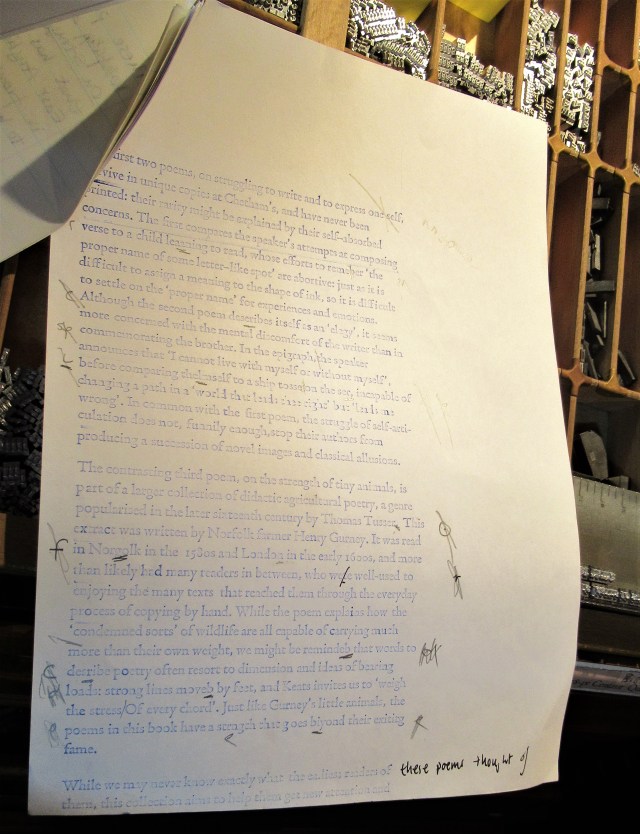 first two poems, on struggling to write and to express oneself,
vive in unique copies at Chetham's, and have never been
printed: their rarity might be explained by their self-absorbed
concerns. The first compares the speaker's attempts at composing
verse to a child learning to read, whose efforts to remeber 'the
proper name of some letter-like spot' are abortive: just as it is
difficult to assign a meaning to the shape of ink, so it is difficult
to settle on the 'proper name' for experiences and emotions.
Although the second poem describes itself as an 'elegy', it seems
more concerned with the mental discomfort of the writer than in
commemorating the brother. In the epigraph, the speaker
announces that 'I cannot live with myself or without myself',
before comparing themself to a ship tossed on the sea, incapable of
changing a path in a 'world that leads thee right' but
wrong'. In common with the first poem, the struggle of self-arti-
culation does not, funnily enough, stop their authors from
producing a succession of novel images and classical allusions.
The contrasting third poem, on the strength of tiny animals, is
part of a larger collection of didactic agricultural poetry, a genre
popularised in the later sixteenth century by Thomas Tusser. This
extract was written by Norfolk farmer Henry Gurney. It was read
in Norfolk in the 1580s and London in the early 1600s, and more
than likely had many readers in between, who were well-used to
enjoying the many texts that reached them through the everyday
process of copying by hand. While the poem explains how the
'condemned sorts' of wildlife are all capable of carrying much
more than their own weight, we might be remindeb that words to
desribe poetry often resort to dimension and ideas of bearing
loads: strong lines moveb by feet, and Keats invites us to 'weigh
the stress/Of every chord'. Just like Gurney's little animals, the
poems in this book have a strength that goes biyond their existing
fame.
While we may never know exactly what the earliest readers of these poems thought of
them, this collection aims to help them get new attention and